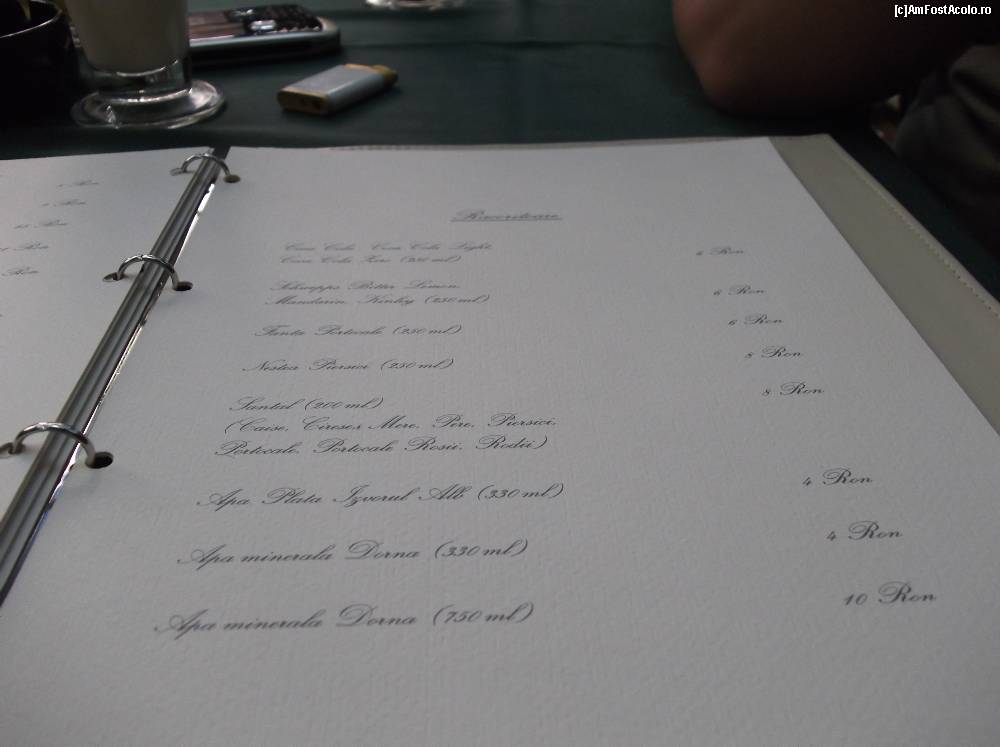 [c]AmFostAcolo.ro
Racoritoare
Coca Cola, Coca Cola Light,
Coca Cola Zero (250 ml) 6 Ron
Schwepps Bitter Lemon,
Mandarin, Kinley (250 ml) 6 Ron
Fanta Portocale (250 ml) 6 Ron
Nestea Piersici (250 ml) 8 Ron
Santal (200 ml) 8 Ron
(Caise, Cirese, Mere, Pere, Piersici,
Portocale, Portocale Rosii, Rodii)
Apa Plata Izvorul Alb (330 ml) 4 Ron
Apa minerala Dorna (330 ml) 4 Ron
Apa minerala Dorna (750 ml) 10 Ron
Ron
Ron
Ron
Ron
Ron